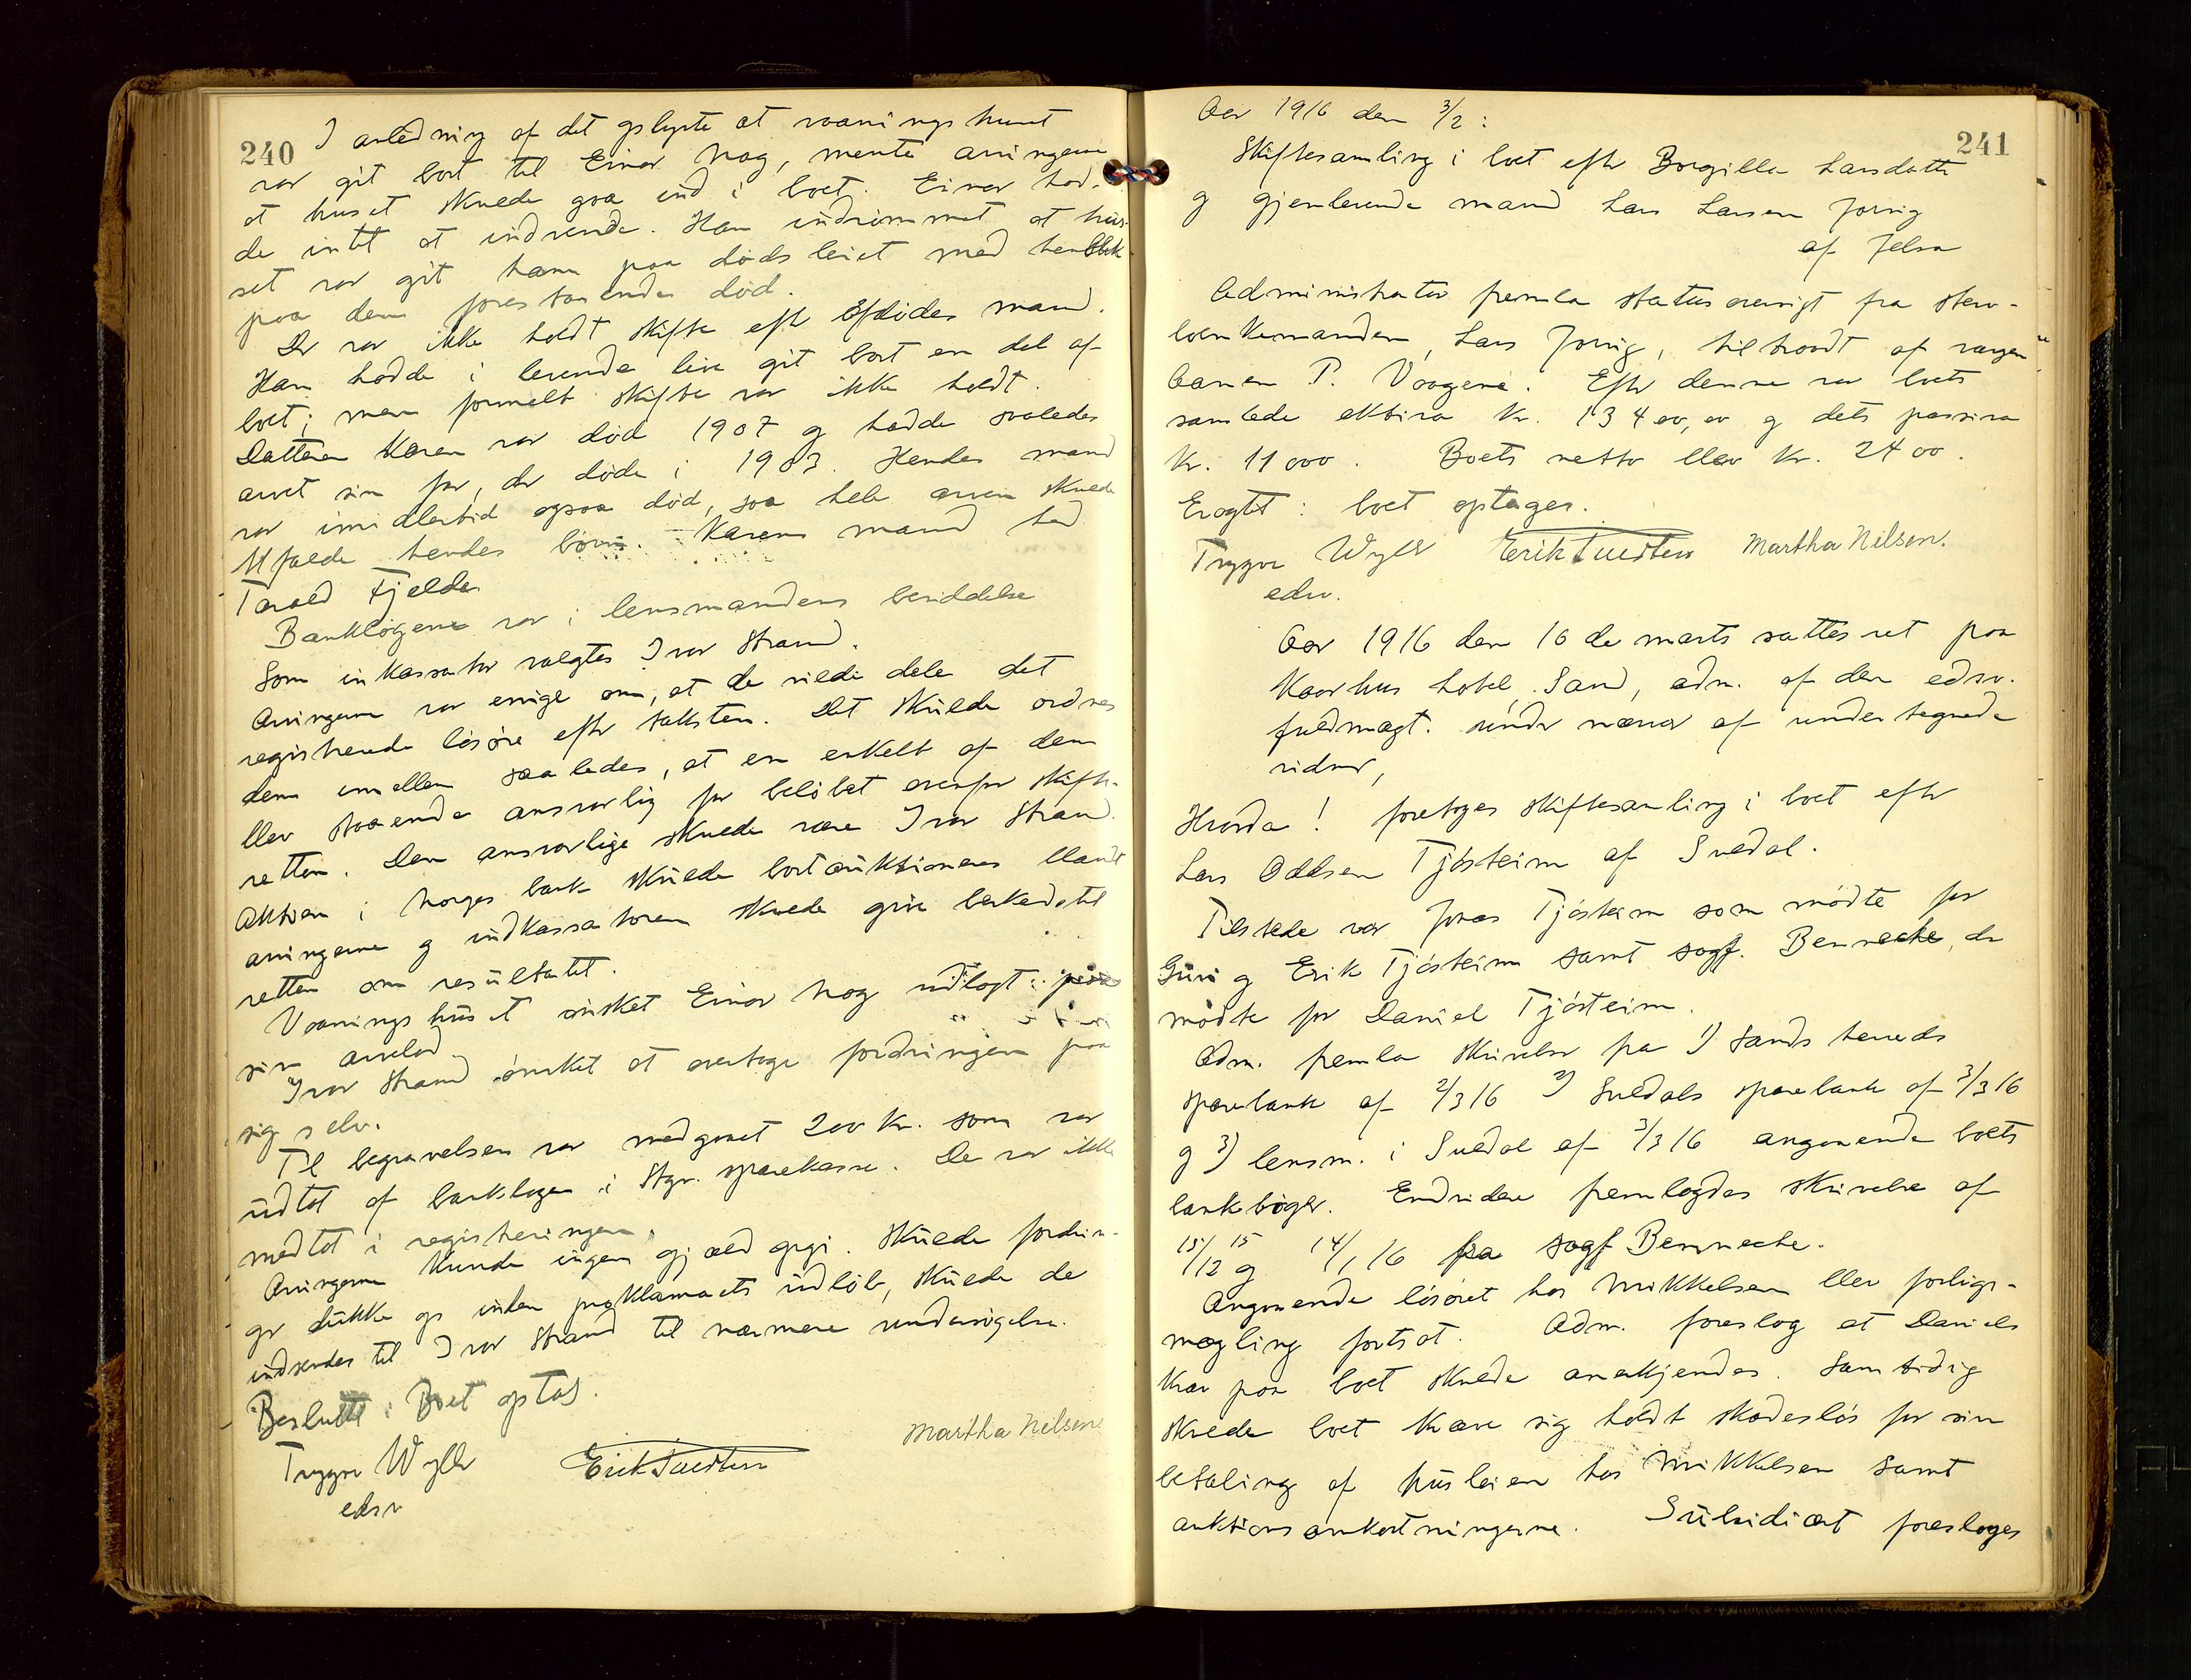 240
I anledning af det oplyste at vaaningshuset
var git bort til Einar Hog, mente arvingerne
at huset skulde gaa ind i boet. Einar had-
de intet at indvende. Han indrømmet at hus-
set var git ham paa dødsleiet med henblik
paa den forestaaende død.
Der var ikke holdt skifte efter afdødes mand.
Han hadde i levende live git bort en del af
boet; men formelt skifte var ikke holdt.
Datteren Karen var død 1907 og hadde saaledes
arvet sin far, der døde i 1903. Hendes mand
var imidlertid ogsaa død, saa hele arven skulde
tilfalde hendes børn. Karens mand hed
Tarald Fjelde
Bankbøgene var i lensmandens besiddelse
Som inkassator valgtes Ivar Strand.
Arvingerne var enige om, at de vilde dele det
registrerede løsøre efter taksten. Det skulde ordnes
dem imellem saaledes, at en enkelt af dem
blev staaende ansvarlig for beløbet overfor skifte-
retten. Den ansvarlige skulde være Ivar Strand.
Aktien i Norges bank skulde bortauktioneres blandt
arvingerne og indkassatoren skulde give besked til
retten om resultatet.
Vaaningshuset ønsket Einar Hog udlagt paa
sin arvelod.
Ivar Strand ønsket at overtage fordringen paa
sig selv.
Til begravelsen var medgaaet 200 kr. som var
udtat af bankbogen i Stgr. sparekasse. De var ikke
medtat i registreringen.
Arvingerne kunde ingen gjæld opgi. Skulde fordrin-
ger dukke op inden proklamaets udløb, skulde de
indsendes til Ivar Strand til nærmere undersøgelse.
Besluttet: Boet optas.
Trygve Wyller Erik Tuestten Martha Nilsen
edsv
241
Aar 1916 den 3/2:
Skiftesamling i boet efter Borgilla Larsdatter
og gjenlevende mand Lars Larsen Jorvig
af Jelsa
Administrator fremla statusoversigt fra sterv-
boenkemanden, Lars Jorvig, tiltraadt af vergen
Aanen P. Vaagene. Efter denne var boets
samlede aktiva kr. 13400,00 og dets passiva
kr. 11000. Boets netto blev kr. 2400.
Eragtet: boet optages.
Trygve Wyller Erik Tuestten Martha Nilsen.
edsv.
Aar 1916 den 10de marts sattes ret paa
Kaarhus hotel, Sand, adm. af den edsv.
fuldmægt. under nærvær af undertegnede
vidner,
Hvorda! foretoges skiftesamling i boet efter
Lars Oddsen Tjósteim af Suldal.
Tilstede var Jonas Tjósteim som mødte for
Guri og Erik Tjósteim samt sagf. Benneche, der
mødte for Daniel Tjósteim.
Adm. fremla skrivelse fra 1) Sands herreds
sparebank af 2/3 16 2) Suldals sparebank af 3/3 16
og 3) lensm. i Suldal af 3/3 16 angaaende boets
bankbøger. Endvidere fremlagdes skrivelse af
15/12 15 og 14/1 16 fra sagf Benneche.
Angaaende løsøret hos Mikkelsen blev forligs-
mægling fortsat. Adm. foreslog at Daniels
krav paa boet skulde anerkjendes. Samtidig
skulde boet kræve sig holdt skadesløs for sin
betaling af husleien hos Mikkelsen samt
auktionsomkostningerne. Subsidiært foresloges